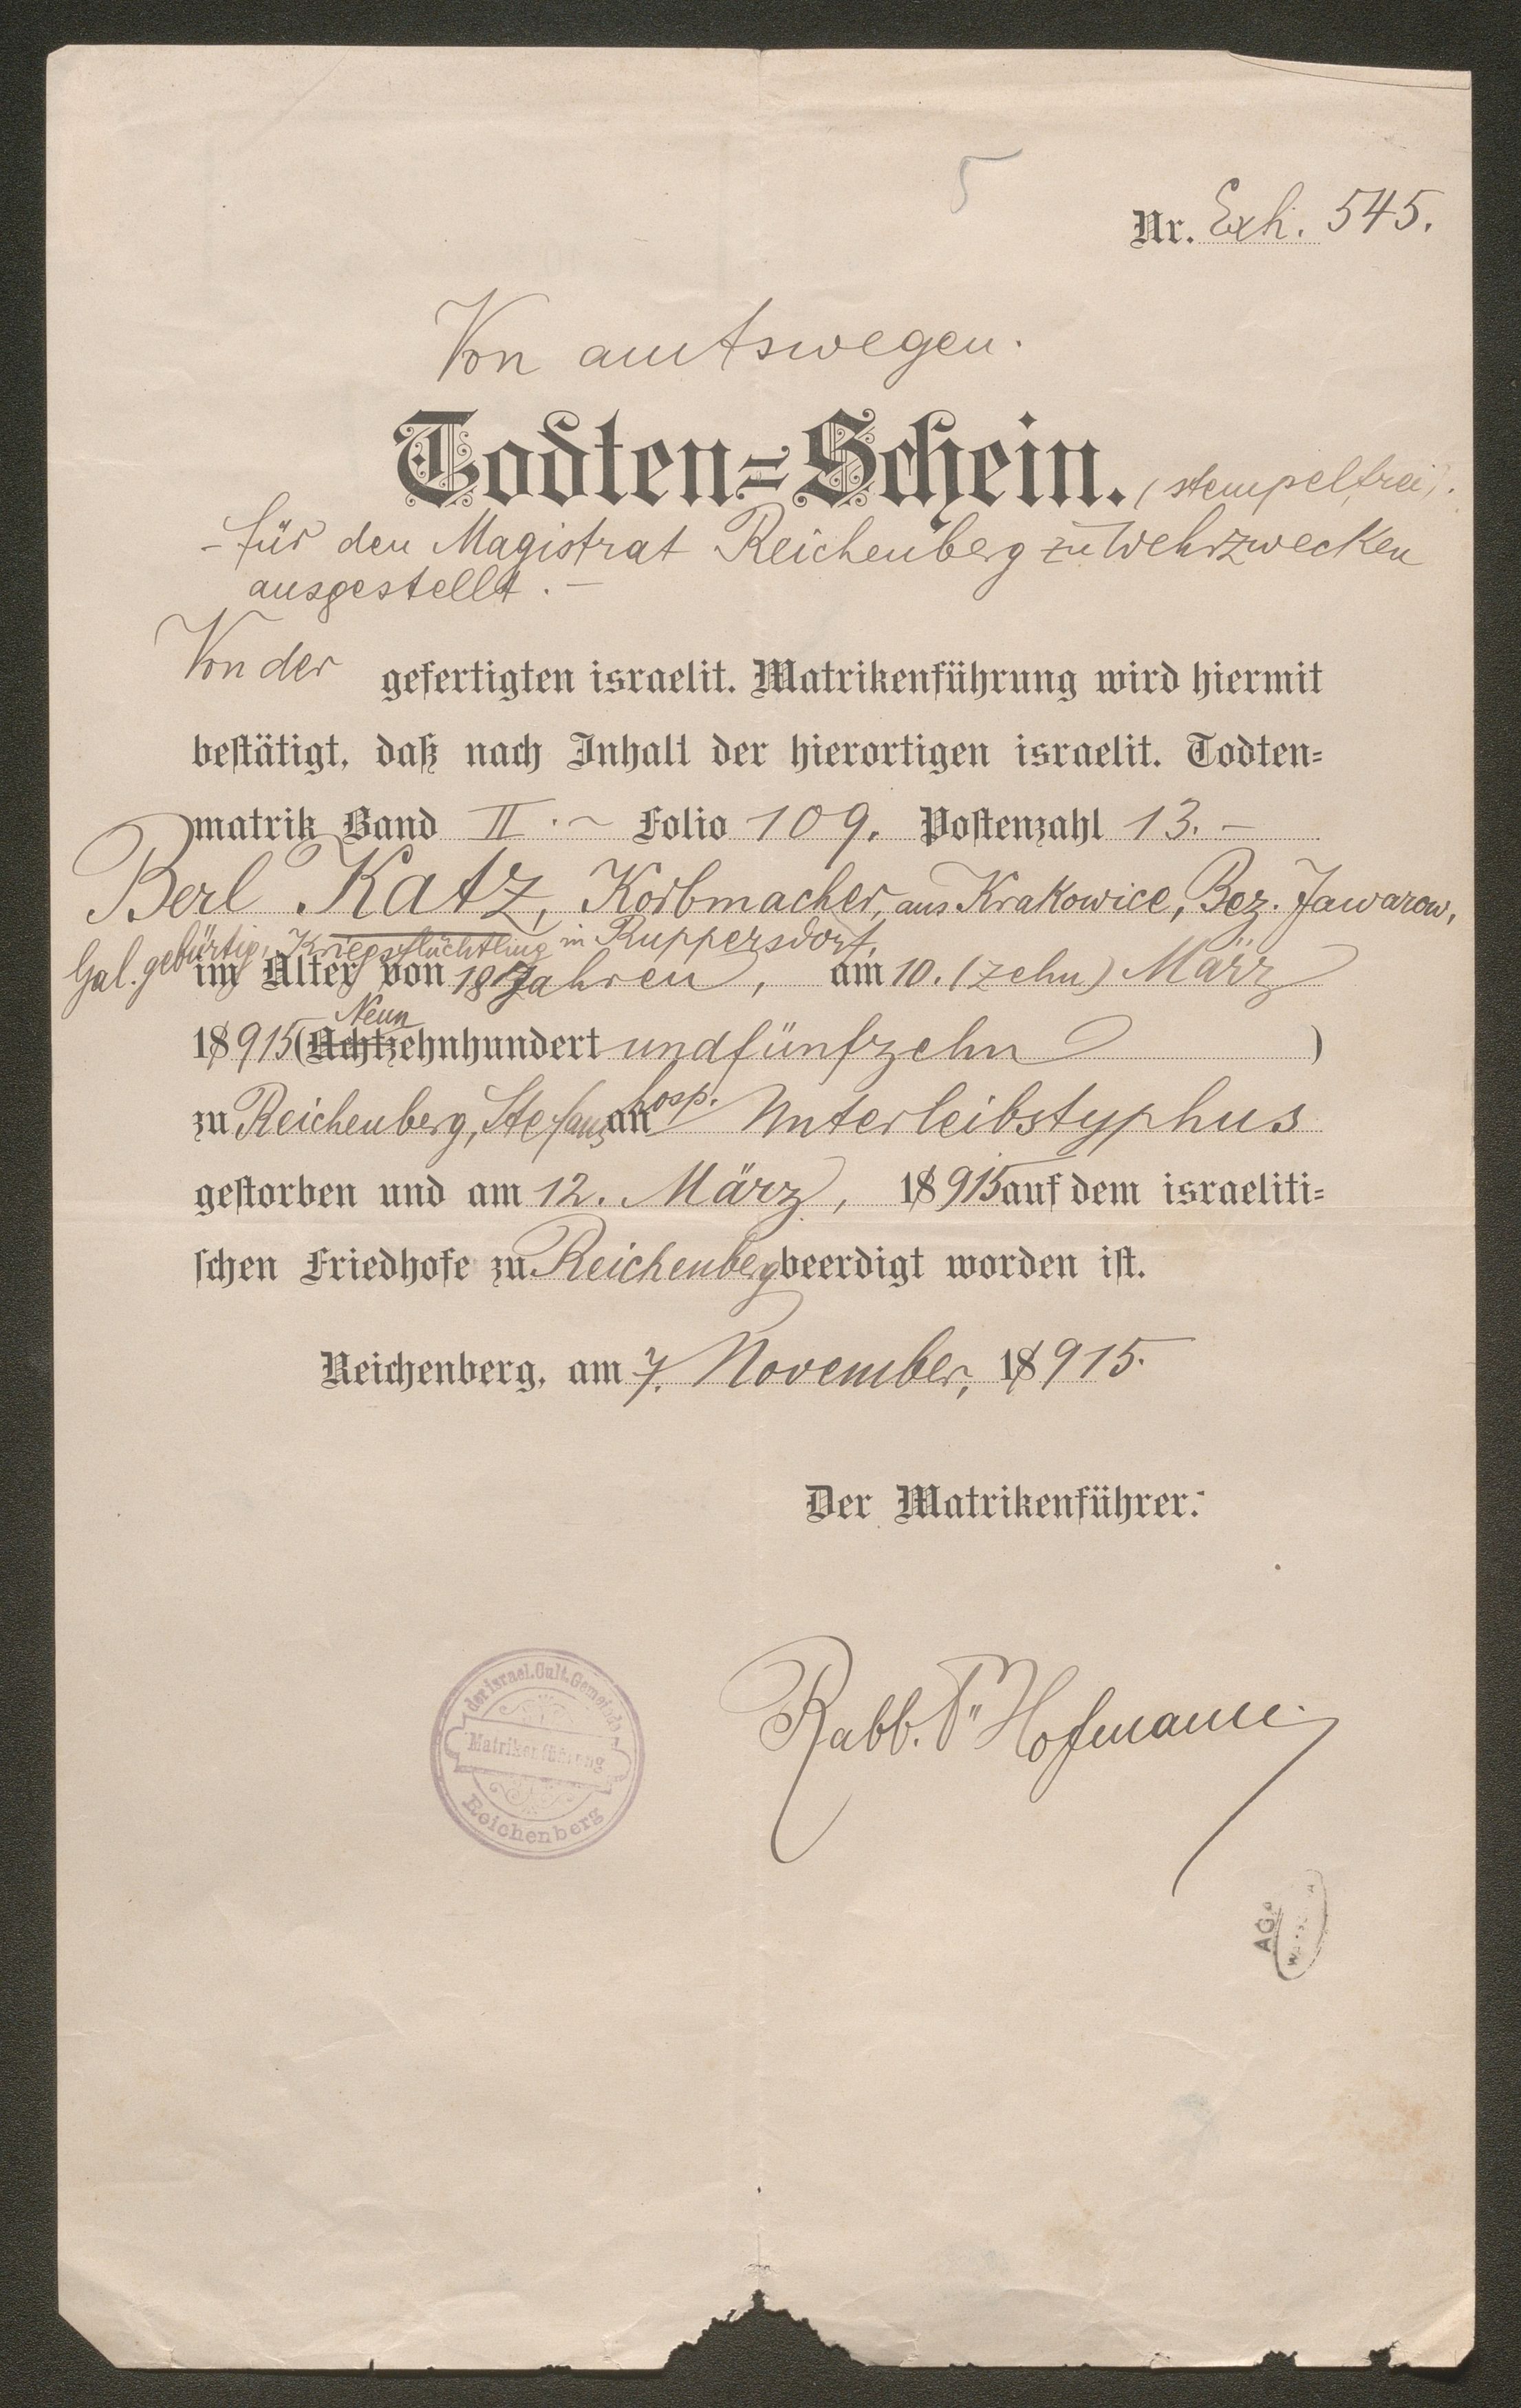 5
Nr. Exh. 545.
Von amtswegen.
Todten=Schein. (stempelfrei).
- für den Magistrat Reichenberg zu Wehrzwecken
ausgestellt. -
Von der gefertigten israelit. Matrikenführung wird hiermit
bestätigt, daß nach Inhalt der hierortigen israelit. Todten=
matrik Band II. ~ Folio 109. Postenzahl 13. -
Berl Katz, Korbmacher, aus Krakowice, Bez. Jawarow,
Gal. gebürtig, Kriegsflüchtling in Ruppersdorf,
im Alter von Jahren, am 10. (zehn) März
18915 (Achtzehnhundert undfünfzehn )
Neun
zu Reichenberg, Stefans hosp. an Unterleibstyphus
gestorben und am 12. März, 18915 auf dem israeliti=
schen Friedhofe zu Reichenberg beerdigt worden ist.
Reichenberg, am 7. November, 18915.
Der Matrikenführer:
Rabb. Dr Hofmann
der israel. Cult. Gemeinde
Matrikenführung
Reichenberg